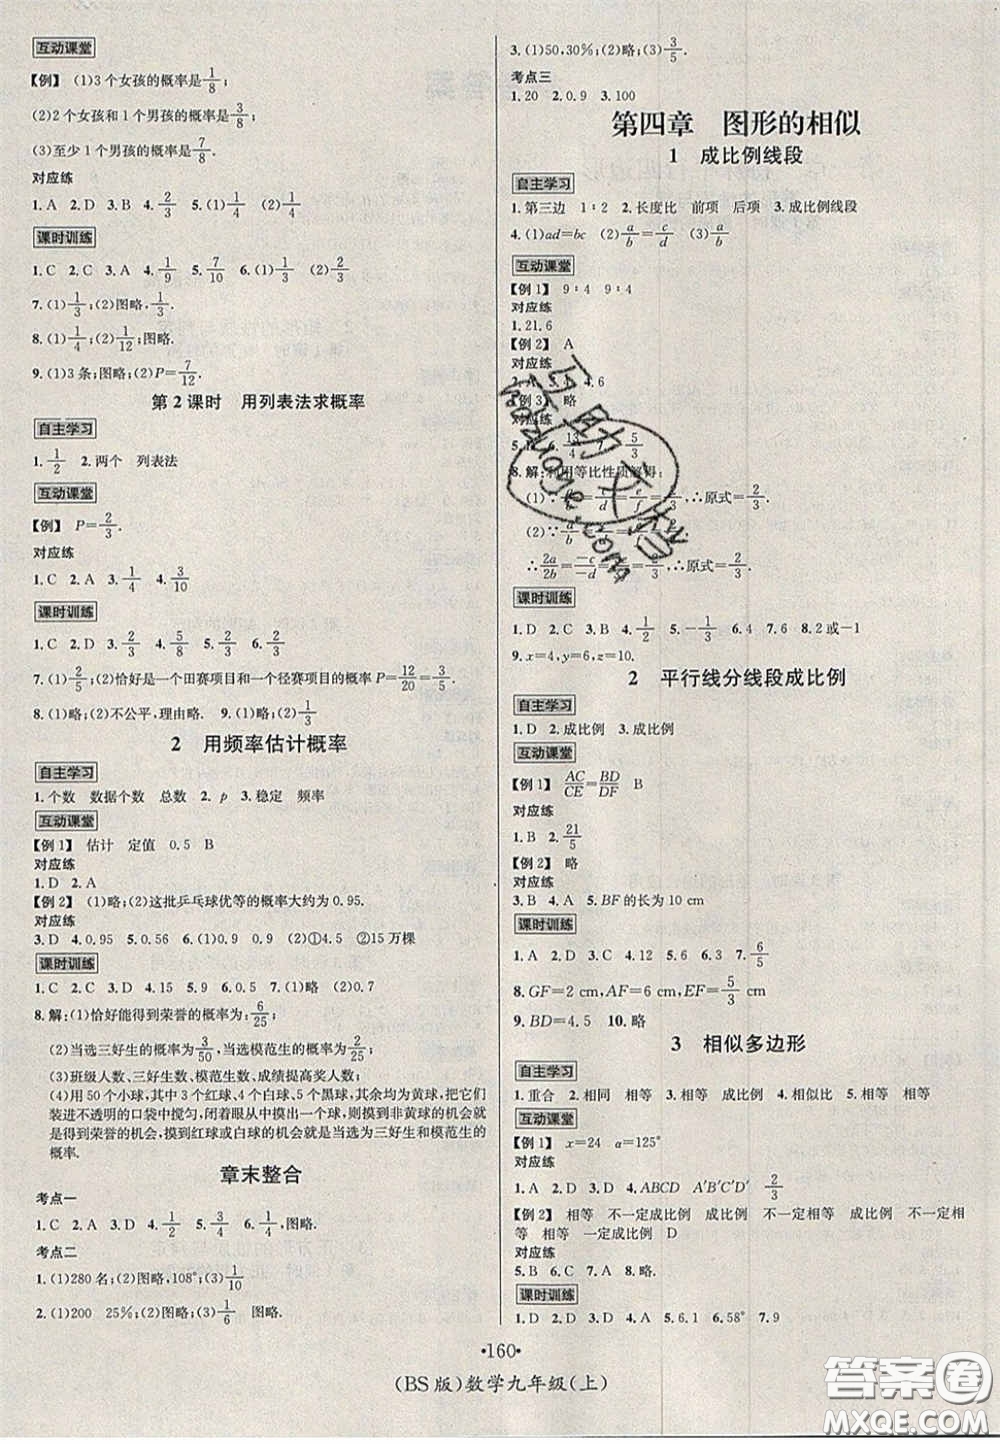 互动课堂
【例】 (1)3个女孩的概率是1/8;
(2)2个女孩和1个男孩的概率是3/8;
(3)至少1个男孩的概率是7/8.
对应练
1.A 2.D 3.A 4.2/3 5.(1)1/4 (2)1/4
课时训练
1.C 2.C 3.A 4.1/9 5.7/10 6.(1)1/4 (2)1/3
7.(1)1/3;(2)图略,1/3.
8.(1)1/4;(2)1/12;图略.
9.(1)3条;图略;(2)P=7/12.
第2课时 用列表法求概率
自主学习
1.1/2 2.两个 列表法
互动课堂
【例】 P=2/3.
对应练
1.C 2.A 3.1/4 4.3/10
课时训练
1.C 2.D 3.2/3 4.5/8 5.2/3 6.2/3
7.(1)2/5;(2)恰好是一个田赛项目和一个径赛项目的概率P=12/20=3/5.
8.(1)略;(2)不公平,理由略. 9.(1)略;(2)1/3
2 用频率估计概率
自主学习
1.个数 数据个数 总数 2.p 3.稳定 频率
互动课堂
【例1】 估计 定值 0.5 B
对应练
1.D 2.A
【例2】 (1)略;(2)这批乒乓球优等的概率大约为0.95.
对应练
3.D 4.0.95 5.0.56 6.(1)0.9 0.9 (2)①4.5 ②15万棵
课时训练
1.C 2.C 3.D 4.15 5.9 6.0.5 7.(1)略;(2)0.6
8.解:(1)恰好能得到荣誉的概率为:6/25;
(2)当选三好生的概率为3/50,当选模范生的概率为3/50;
(3)班级人数、三好生数、模范生数、成绩提高奖人数;
(4)用50个小球,其中3个红球、4个白球、5个黑球,其余均为黄球,把它们
装进不透明的口袋中搅匀,闭着眼从中摸出一个球,则摸到非黄球的机会就
是得到荣誉的机会,摸到红球或白球的机会就是当选为三好生和模范生的
概率.
章末整合
考点一
1.C 2.D 3.D 4.1/2 5.3/4 6.1/4,图略.
考点二
1.(1)280名;(2)图略,108°;(3)1/10
2.(1)200 25%;(2)图略;(3)1/6 图略.
3.(1)50,30%;(2)略;(3)3/5
考点三
1.20 2.0.9 3.100
第四章 图形的相似
1 成比例线段
自主学习
1.第三边 1∶2 2.长度比 前项 后项 3.成比例线段
4.(1)ad=bc (2)a/b=c/d (3)a/b
互动课堂
【例1】 9∶4 9∶4
对应练
1.21,6
【例2】 A
对应练
2.A 4.6
【例3】 略
对应练
6.13/4 7.5/3
8.解:利用等比性质解得:
(1)∵a/b=c/d=e/f=2/3,∴原式=2/3.
(2)∵a/b
∴2a/2b=-c/-d=2/3,∴原式=2/3.
课时训练
1.D 2.D 3.B 4.1/2 5.-1/3 6.4 7.6 8.2或-1
9.x=4,y=6,z=10.
2 平行线分线段成比例
自主学习
1.D 2.成比例 3.成比例
互动课堂
【例1】 AC/CE=BD/DF B
对应练
1.B 2.21/5
【例2】 略
3.B 4.A 5.BF的长为10 cm
课时训练
1.D 2.B 3.C 4.12 5.6 6.3 7.6/5
8.GF=2 cm,AF=6 cm,EF=5/3 cm
9.BD=4.5 10.略
3 相似多边形
自主学习
1.重合 2.相同 相等 相等 成比例 4.相似比 相等 相等
互动课堂
【例1】 x=24 α=125°
对应练
1.A 2.D 3.D 4.ABCD A′B′C′D′ 2/3
【例2】 相等 不一定成比例 成比例 不一定相等 不一定相
等 相等 一定成比例 D
对应练
5.B 6.C 7.A 8.略.
课时训练
1.D 2.D 3.D 4.A 5.6.1 6.58° 7.9
·160·
(BS版)数学九年级(上)
互助文档
hazuoge.com
答案圈
MXQE.COM